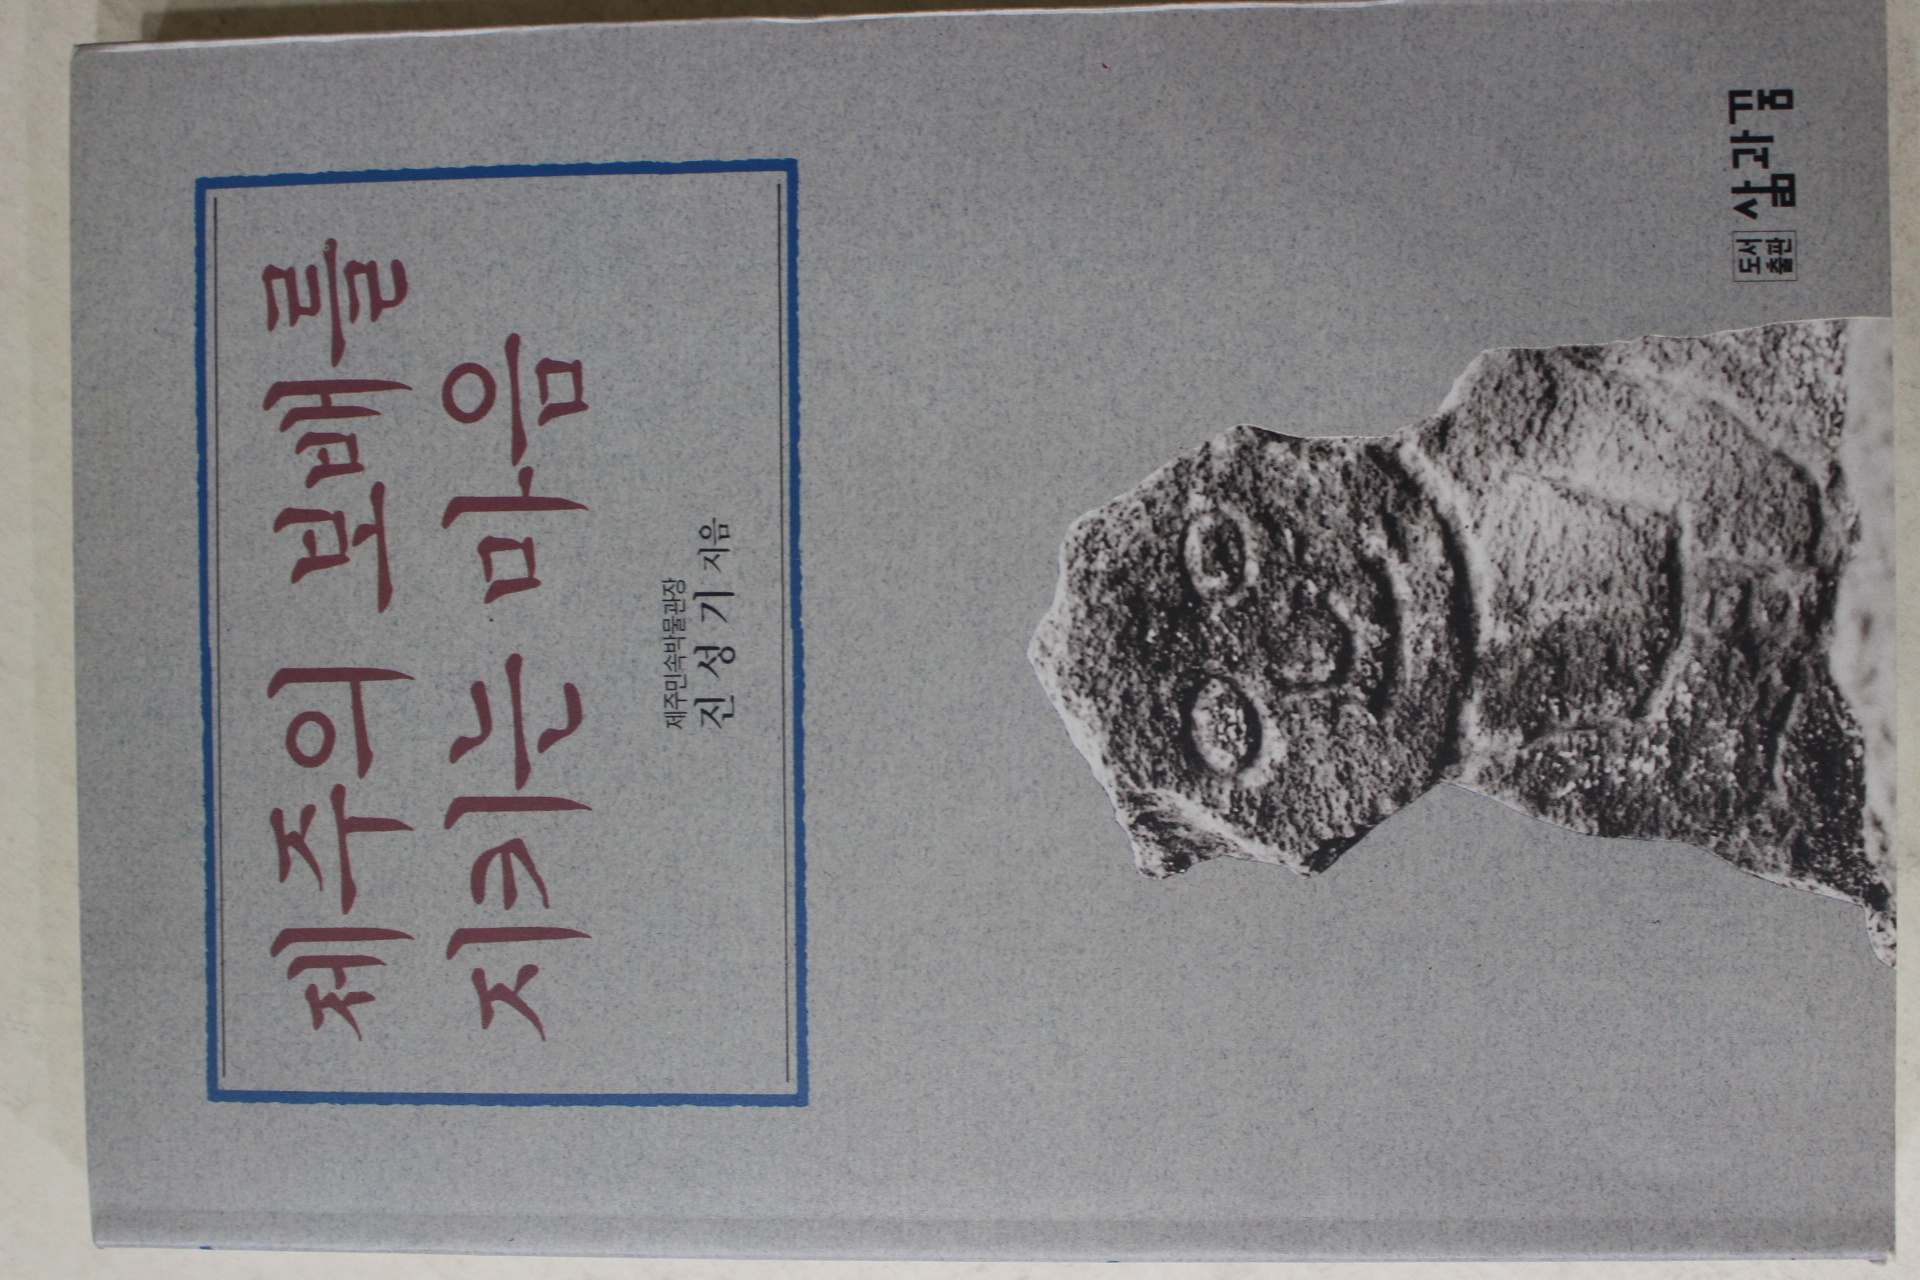 제주의 보배를
지키는 마음
제주민속박물관장
진성기 지음
도서
출판
삶과꿈